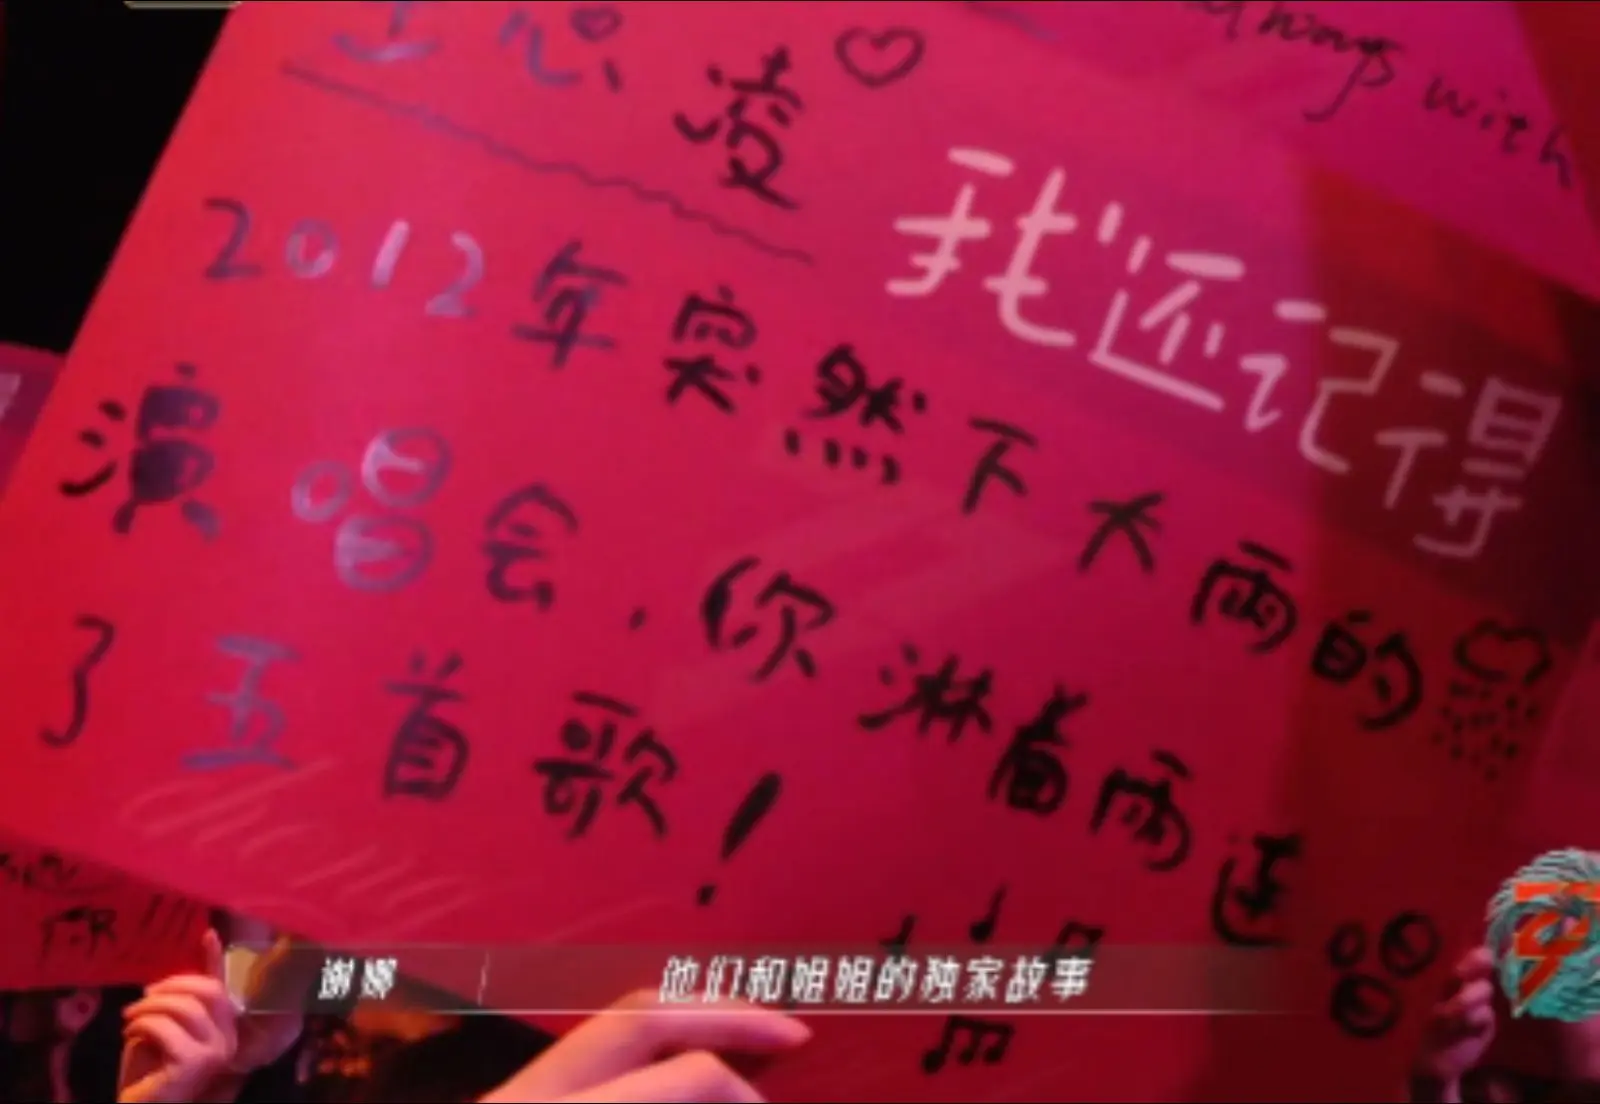 always with
王心凌
我还记得
2012年突然下大雨的
演唱会,你淋着雨连唱
了五首歌!
谢娜 他们和姐姐的独家故事